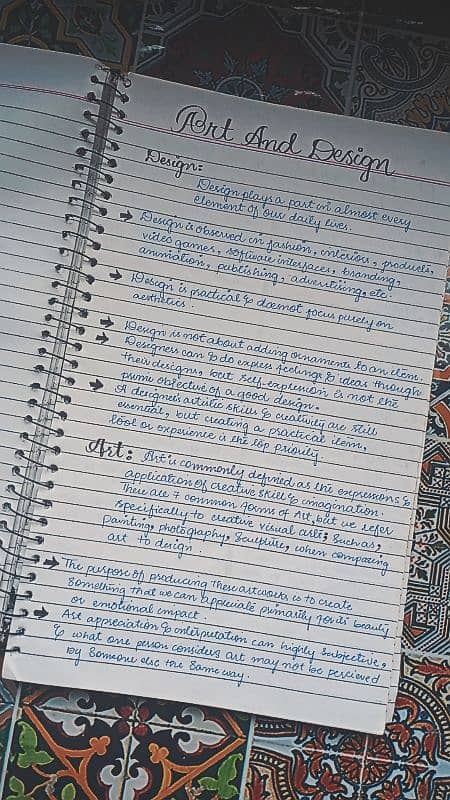 Art And Design
Design:
Design plays a part in almost every
element of our daily lives.
→ Design is observed in fashion, interiors, products,
video games, software interfaces, branding,
animation, publishing, advertising, etc.
→ Design is practical & doesnot focus purely on
aesthetics.
→ Design is not about adding ornaments to an item.
→ Designers can & do express feelings & ideas through
their designs, but self-expression is not the
prime objective of a good design.
→ A designer's artistic skills & creativity are still
essential, but creating a practical item,
tool or experience is the top priority.
Art: Art is commonly defined as the expressions &
application of creative skill & imagination.
There are 7 common forms of Art, but we refer
specifically to creative visual arts, such as,
painting, photography, sculpture, when comparing
art to design.
→ The purpose of producing these artworks is to create
something that we can appreciate primarily for its beauty
or emotional impact.
→ Art appreciation & interpretation can highly subjective,
& what one person considers art may not be percieved
by someone else the same way.